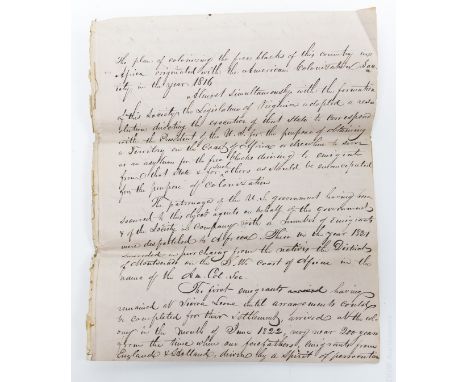 The plan of colonising the free blacks of this country in
Africa originated with the American Colonization So-
ciety in the year 1816
Almost simultaneously with the formation
of this Society the Legislature of Virginia adopted a reso
lution directing the executive of that State to correspond
with the President of the U. S. for the purpose of obtaining
a Territory on the Coast of Africa or elsewhere to serve
as an asylum for the free blacks desiring to emigrate
from that State & for such others as should be emancipated
for the purpose of Colonization
The patronage of the U. S. government having been
secured to this object agents on behalf of the government
& of the Society in company with a number of emigrants
were despatched to Africa. These in the year 1821
succeeded in purchasing from the natives the District
of Montserado on the S. W. Coast of Africa in the
name of the Am. Col. Soc.
The first emigrants having
remained at Sierra Leone until arrangements could
be completed for their Settlement, arrived at the col
ony in the month of June 1822, very near 200 years
from the time when our forefathers, emigrants from
England & Holland, driven by a spirit of persecution